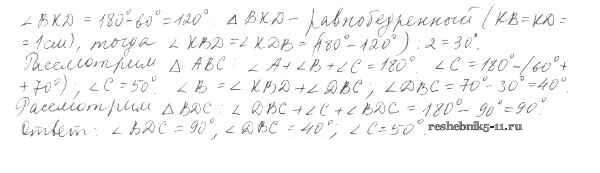 ∠BKD = 180°-60°=120°. △BKD - равнобедренный (KB=KD=
=1см), тогда ∠KBD=∠KDB=(180°-120°):2=30°.
Рассмотрим △ABC: ∠A+∠B+∠C=180°. ∠C=180°-(60°+
+70°), ∠C=50°. ∠B=∠KBD+∠DBC; ∠DBC=70°-30°=40°.
Рассмотрим △BDC: ∠DBC+∠C+∠BDC=180°-90°=90°.
Ответ: ∠BDC=90°, ∠DBC=40°; ∠C=50°.
reshebnik5-11.ru